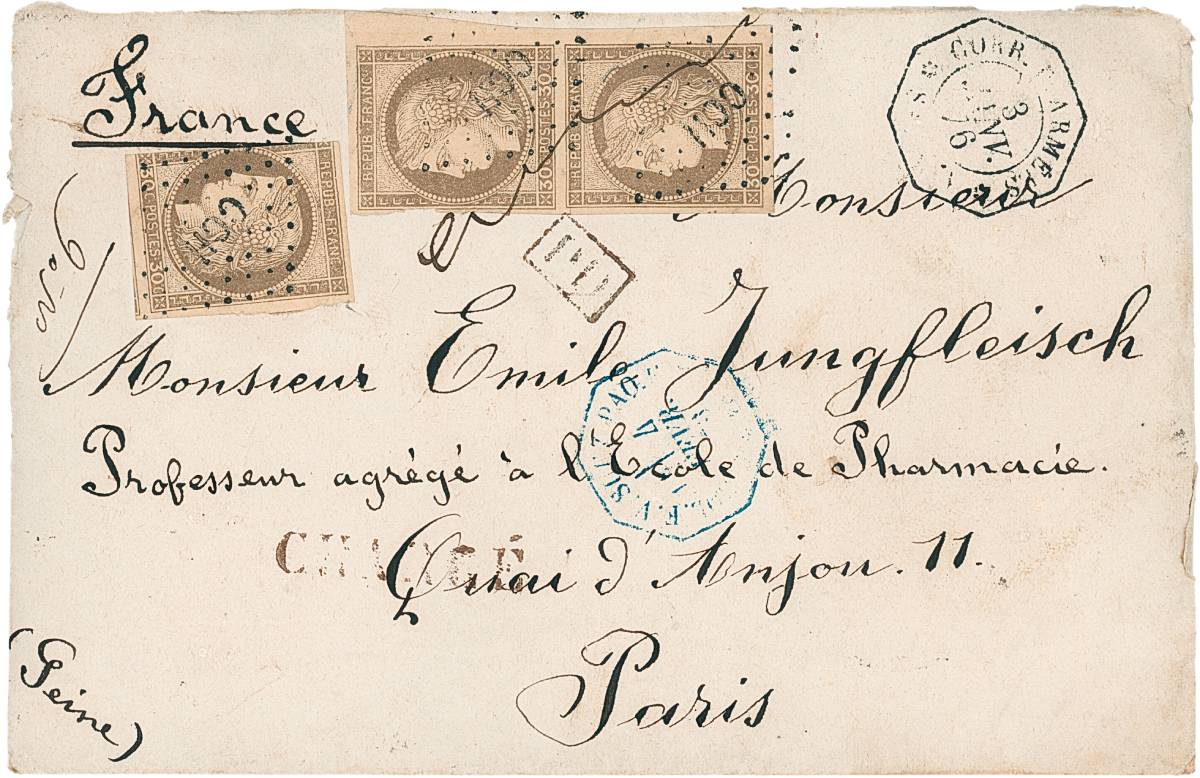 France
REPUB. FRANC.
30 C. POSTES 30 C.
REPUB. FRANC.
30 C. POSTES 30 C.
REPUB. FRANC.
30 C. POSTES 30 C.
CCH
CCH
CCH
CORR. ARMÉES
3
JANV.
76
N° 6
PD
Monsieur
Monsieur Emile Jungfleisch
Professeur agrégé à l'Ecole de Pharmacie.
PAQ.
4
CHARGÉ
Quai d'Anjou. 11.
Paris
(Seine)